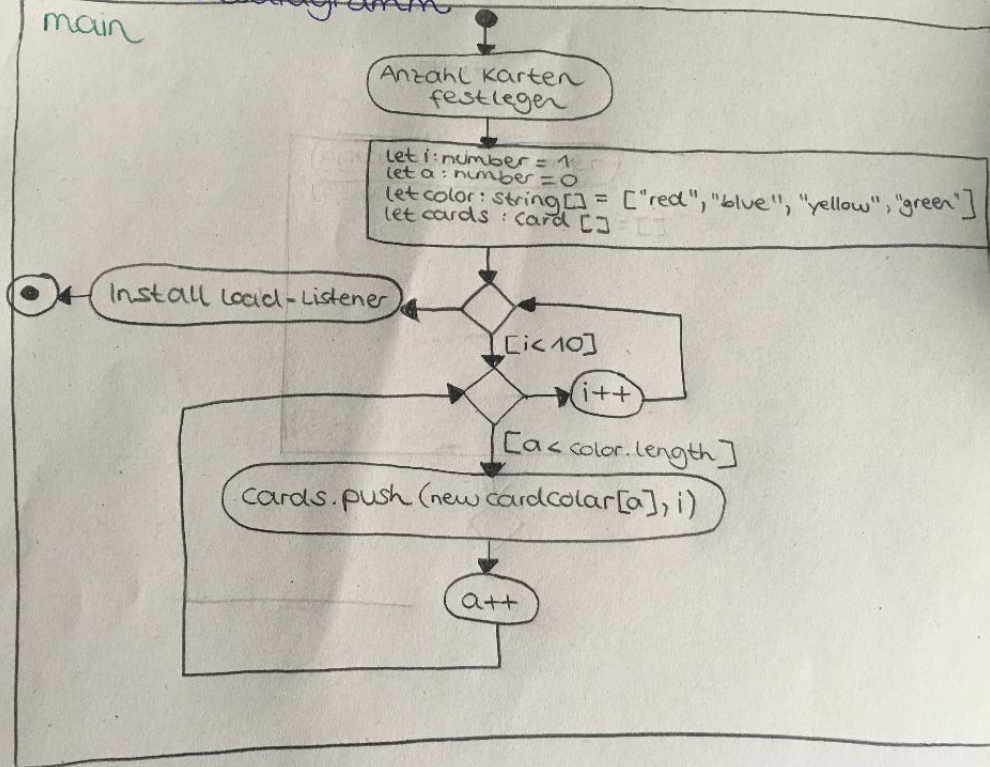 main
Anzahl Karten
festlegen
let i: number = 1
let a: number = 0
let color: string[] = ["red", "blue", "yellow", "green"]
let cards : card []
Install load-Listener
[i< 10]
i++
[a< color.length]
cards.push (new cardcolar[a], i)
a++